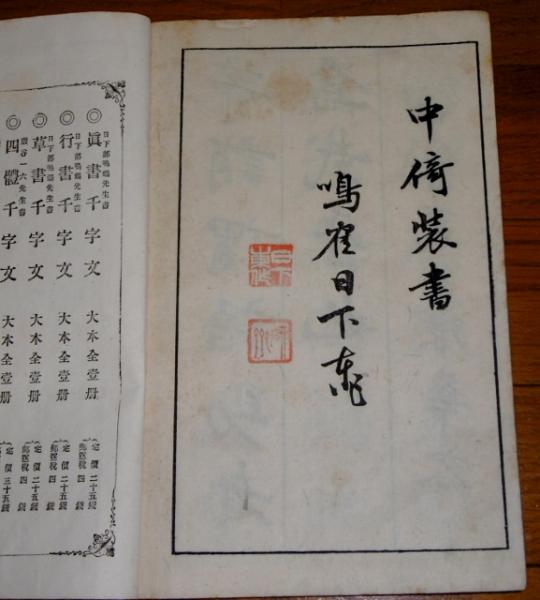 中倚装書
鳴隺日下東作
日下東作
◎眞書千字文 日下部鳴鶴先生書 大本全壹册 定價二十五錢 郵送税四錢
◎行書千字文 日下部鳴鶴先生書 大本全壹册 定價二十五錢 郵送税四錢
◎草書千字文 日下部鳴鶴先生書 大本全壹册 定價二十五錢 郵送税四錢
◎四體千字文 巖谷一六先生書 大本全壹册 定價三十五錢